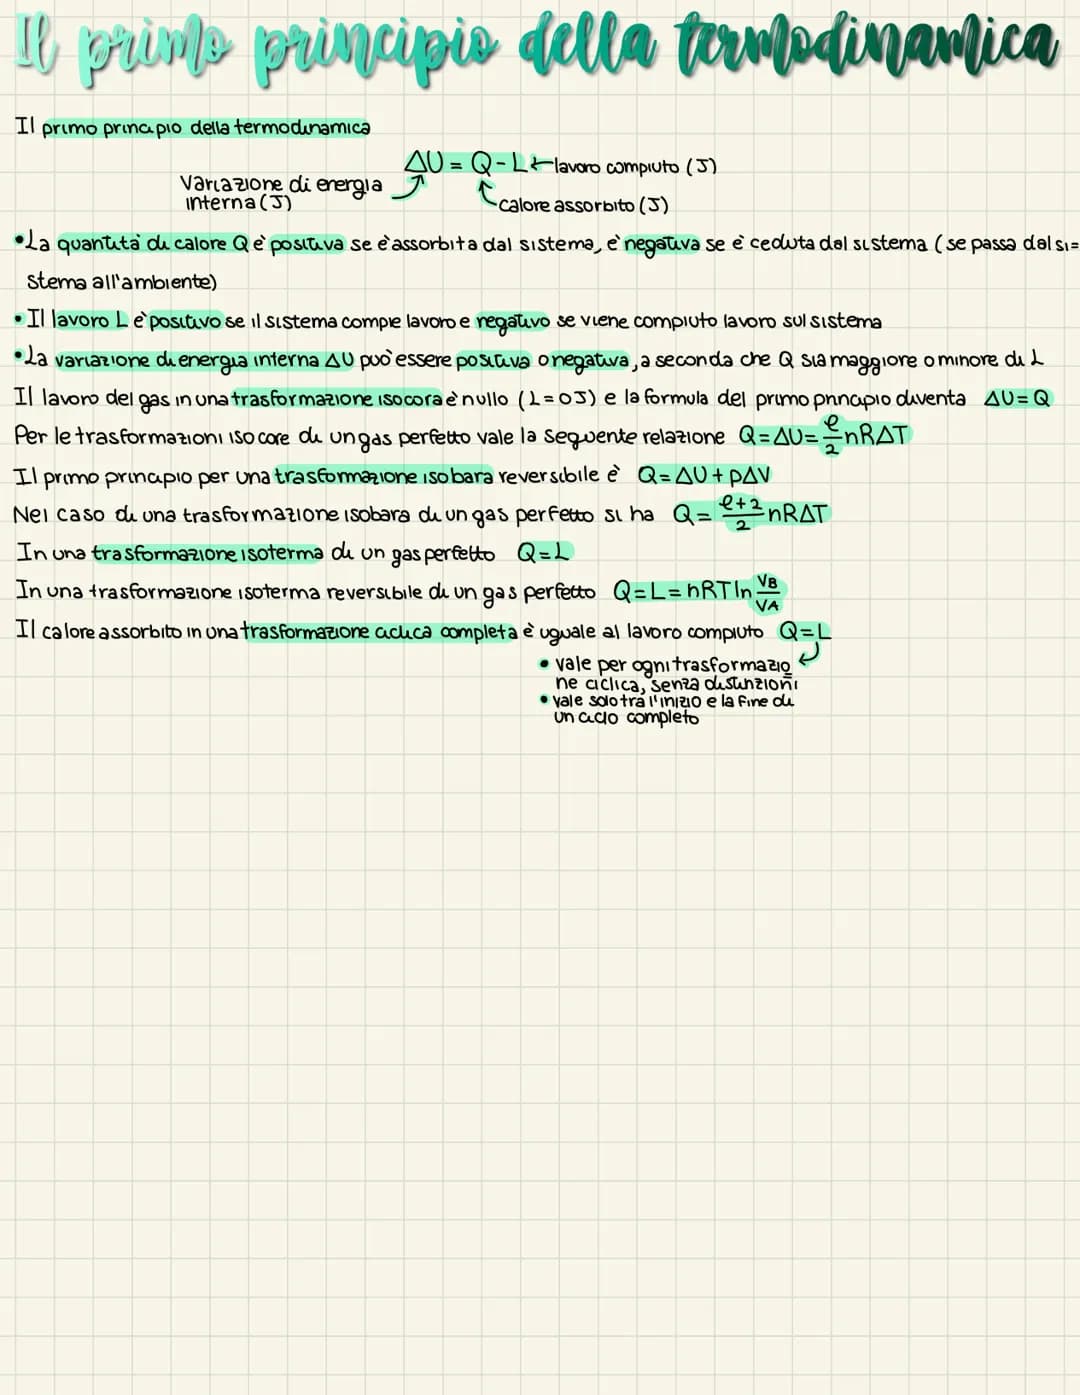 Il primo principio della termodinamica
Il primo principio della termodinamica
ΔU = Q - L ← lavoro compiuto (J)
Variazione di energia
interna (J)
calore assorbito (J)
•La quantità di calore Q è positiva se è assorbita dal sistema, è negativa se è ceduta dal sistema (se passa dal si=
stema all'ambiente)
• Il lavoro L è positivo se il sistema compie lavoro e negativo se viene compiuto lavoro sul sistema
•La variazione di energia interna ΔU può essere positiva o negativa, a seconda che Q sia maggiore o minore di L
Il lavoro del gas in una trasformazione isocora è nullo (L=0J) e la formula del primo principio diventa ΔU=Q
Per le trasformazioni isocore di un gas perfetto vale la seguente relazione Q=ΔU=ℓ/2 nRΔT
Il primo principio per una trasformazione isobara reversibile è Q=ΔU+pΔV
Nel caso di una trasformazione isobara di un gas perfetto si ha Q= ℓ+2/2 nRΔT
In una trasformazione isoterma di un gas perfetto Q=L
In una trasformazione isoterma reversibile di un gas perfetto Q=L=nRTln VB/VA
Il calore assorbito in una trasformazione ciclica completa è uguale al lavoro compiuto Q=L
• vale per ogni trasformazio
ne ciclica, senza distinzioni
• vale solo tra l'inizio e la fine di
un ciclo completo